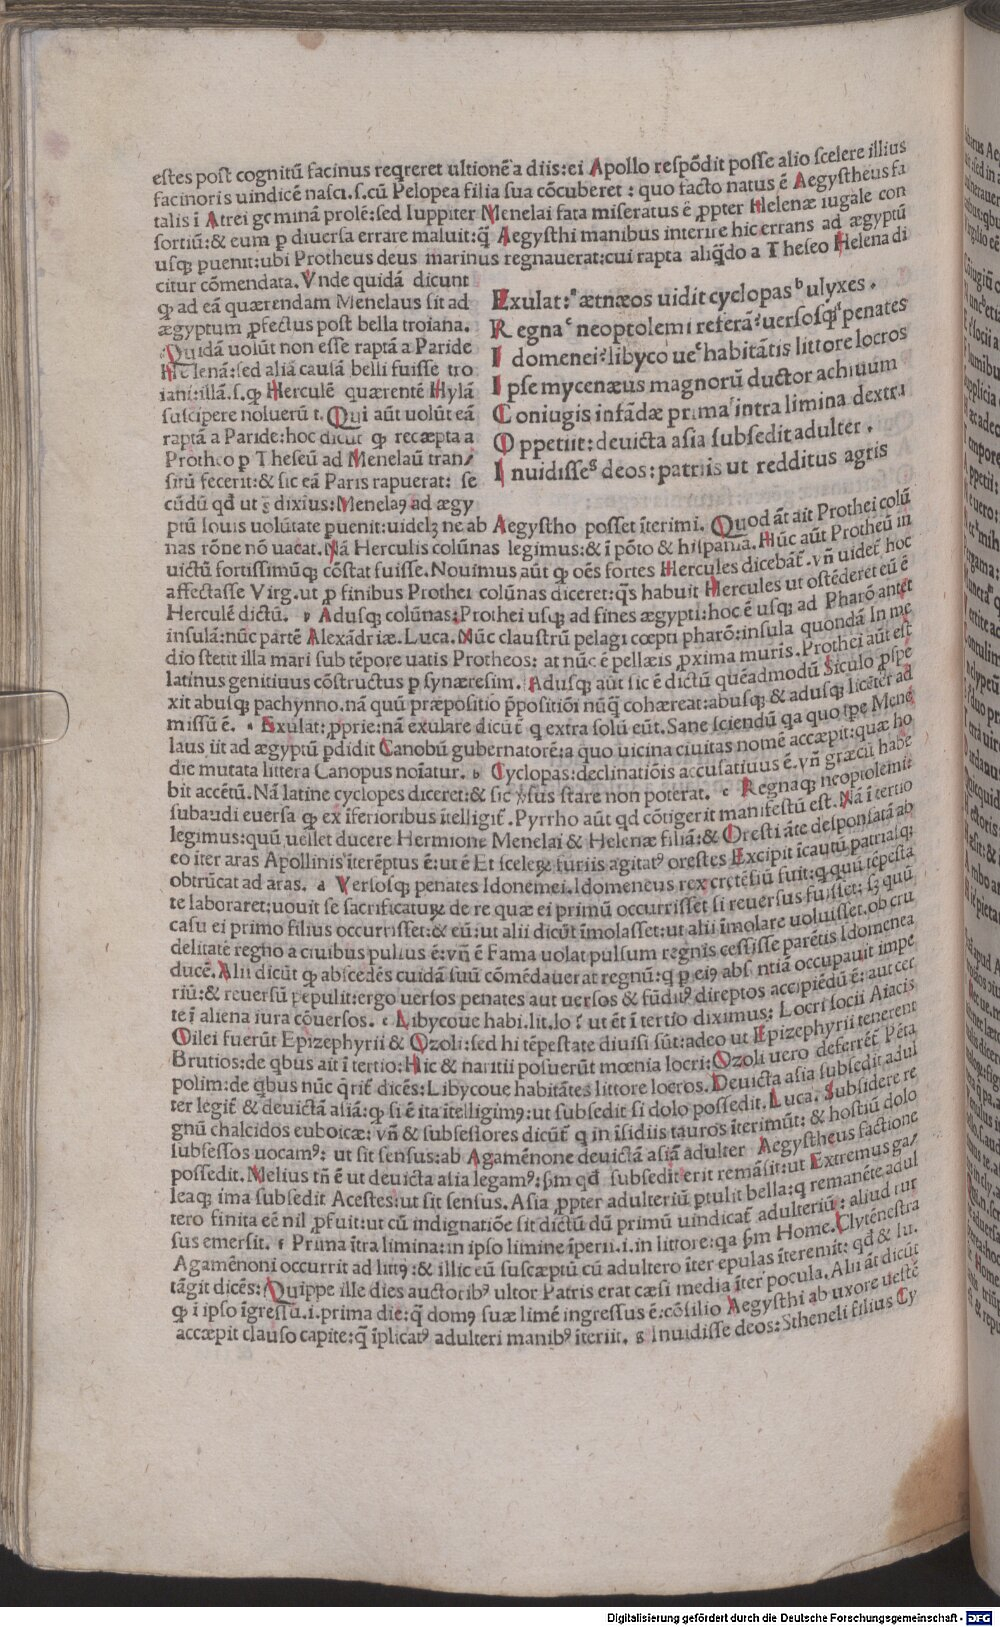 estes post cognitū facinus reqreret ultionē a diis:ei Apollo respōdit posse alio scelere illius
facinoris uindicē nasci.s.cū Pelopea filia sua cōcuberet : quo facto natus ē Aegystheus fa
talis ī Atrei geminā prolē:sed Iuppiter Menelai fata miseratus ē ꝓpter Helenæ iugale con
sortiū:& eum p diuersa errare maluit:q̄ Aegysthi manibus interire hic errans ad ægyptū
usqꝫ puenit:ubi Protheus deus marinus regnauerat:cui rapta aliq̄do a Theseo Helena di
citur cōmendata. Vnde quidā dicunt
ꝙ ad eā quærendam Menelaus sit ad
ægyptum ꝓfectus post bella troiana.
Quidā uolūt non esse raptā a Paride
Helenā:sed aliā causā belli fuisse tro
iani:illā.s.ꝙ Herculē quærentē Hylā
suscipere noluerūt. Qui aūt uolūt eā
raptā a Paride:hoc dicūt ꝙ recæpta a
Protheo p Theseū ad Menelaū tran/
sitū fecerit:& sic eā Paris rapuerat: se
cūdū qđ ut s̄ dixius:Menelaꝰ ad ægy
Exulat:ᵃ ætnæos uidit cyclopasᵇ ulyxes.
Regnaᶜ neoptolemi referā?uersosqꝫᵈ penates
Idomenei?libyco ueᵉ habitātis littore locros
Ipse mycenæus magnorū ductor achiuum
Coniugis infādæ primaᶠ intra limina dextra
Oppetiit:deuicta asia subsedit adulter.
Inuidisseᵍ deos:patriis ut redditus agris
ptū Iouis uolūtate puenit:uidelꝫ ne ab Aegystho posset īterimi. Quod āt ait Prothei colū
nas rōne nō uacat. Nā Herculis colūnas legimus:& ī pōto & hispania. Hūc aūt Protheū in
uictū fortissimūqꝫ cōstat fuisse. Nouimus aūt ꝙ oēs fortes Hercules dicebāt. vn̄ uidet̄ hoc
affectasse Virg.ut p finibus Prothei colūnas diceret:q̄s habuit Hercules ut ostēderet eū ē
Herculē dictū. Adusqꝫ colūnas:Prothei usqꝫ ad fines ægypti:hoc ē usqꝫ ad Pharō antet
insulā:nūc partē Alexādriæ.Luca.Nūc claustrū pelagi cœpti pharō:insula quondā In me
dio stetit illa mari sub tēpore uatis Protheos: at nūc ē pellæis ꝓxima muris. Prothei aūt est
latinus genitiuus cōstructus p synæresim. Adusqꝫ aūt sic ē dictū quēadmodū Siculo ꝓspe
xit abusqꝫ pachynno.nā quū præpositio p̄positiōi nūq̄ cohæreat:abusqꝫ & adusqꝫ licēter ad
missū ē. a Exulat:ꝓprie:nā exulare dicūt̄ q extra solū eūt. Sane sciendū qa quo tp̄e Mene
laus iit ad ægyptū ꝑdidit Canobū gubernatorē:a quo uicina ciuitas nomē accæpit:quæ ho
die mutata littera Canopus noīatur. b Cyclopas:declinatiōis accusatiuus ē.vn̄ græcū habe
bit accētū. Nā latine cyclopes diceret:& sic ꝟsus stare non poterat. c Regnaqꝫ neoptolemi:
subaudi euersa ꝙ ex īferioribus ītelligit̄. Pyrrho aūt qđ cōtigerit manifestū est. Nā ī tertio
legimus:quū uellet ducere Hermione Menelai & Helenæ filiā:& Oresti āte desponsatā ab
eo iter aras Apollinis īterēptus ē:ut ē Et scelerꝫ furiis agitatꝰ orestes Excipit īcautū patriasqꝫ
obtrūcat ad aras. d Versosqꝫ penates Idomenei. Idomeneus rex cretēsiū fuit:q quū tēpesta
te laboraret:uouit se sacrificaturꝫ de re quæ ei primū occurrisset si reuersus fuisset: sꝫ quū
casu ei primo filius occurrisset:& eū:ut alii dicūt īmolasset:ut alii īmolare uoluisset.ob cru
delitatē regno a ciuibus pulsus ē:vn̄ ē Fama uolat pulsum regnis cessisse paternis Idomenea
ducē. Alii dicūt ꝙ abscedēs cuidā suū cōmēdauerat regnū:q p eiꝰ absentiā occupauit impe
riū:& reuersū pepulit:ergo uersos penates aut uersos & fūditꝰ direptos accipiēdū ē: aut cer
te ī aliena iura cōuersos. e Libycoue habi.lit.lo: ut ēt ī tertio diximus: Locri socii Aiacis
Oilei fuerūt Epizephyrii & Ozoli:sed hi tēpestate diuisi sūt:adeo ut Epizephyrii tenerent
Brutios:de qbus ait ī tertio:Hic & naritii posuerūt mœnia locri:Ozoli uero deferrēt̄ Pēta
polim:de q̄bus nūc q̄rit̄ dicēs:Libycoue habitātes littore locros. Deuicta asia subsedit adul
ter legit̄ & deuictā asiā:ꝙ si ē ita ītelligimꝰ:ut subsedit si dolo possedit. Luca. Subsidere re
gnū chalcidos euboicæ: vn̄ & subsesiores dicūt̄ q in īsidiis tauros īterimūt: & hostiū dolo
subsessos uocamꝰ: ut sit sensus:ab Agamēnone deuictā asiā adulter Aegystheus factione
possedit. Melius tn̄ ē ut deuicta asia legamꝰ:ẜm qđ subsedit erit remāsit:ut Extremus ga/
leaqꝫ ima subsedit Acestes:ut sit sensus. Asia ꝓpter adulteriū ꝑtulit bella:q remanēte adul
tero finita eē nil ꝓfuit:ut cū indignatiōe sit dictū dū primū uindicat̄ adulteriū: aliud rur
sus emersit. f Prima ītra limina:in ipso limine īperii.i.in littore:qa ẜm Home. Clytēnestra
Agamēnoni occurrit ad littꝰ:& illic eū susceptū cū adultero īter epulas īteremit: qđ & Iu.
tāgit dicēs:Quippe ille dies auctoribꝰ ultor Patris erat cæsi media īter pocula. Alii āt dicūt
ꝙ ī ipso īgressū.i.prima die:q̄ domꝰ suæ limē ingressus ē:cōsilio Aegysthi ab uxore uestē
accæpit clauso capite:q̄ īplicatꝰ adulteri manibꝰ īteriit. g Inuidisse deos:Stheneli filius Cy
Digitalisierung gefördert durch die Deutsche Forschungsgemeinschaft - DFG